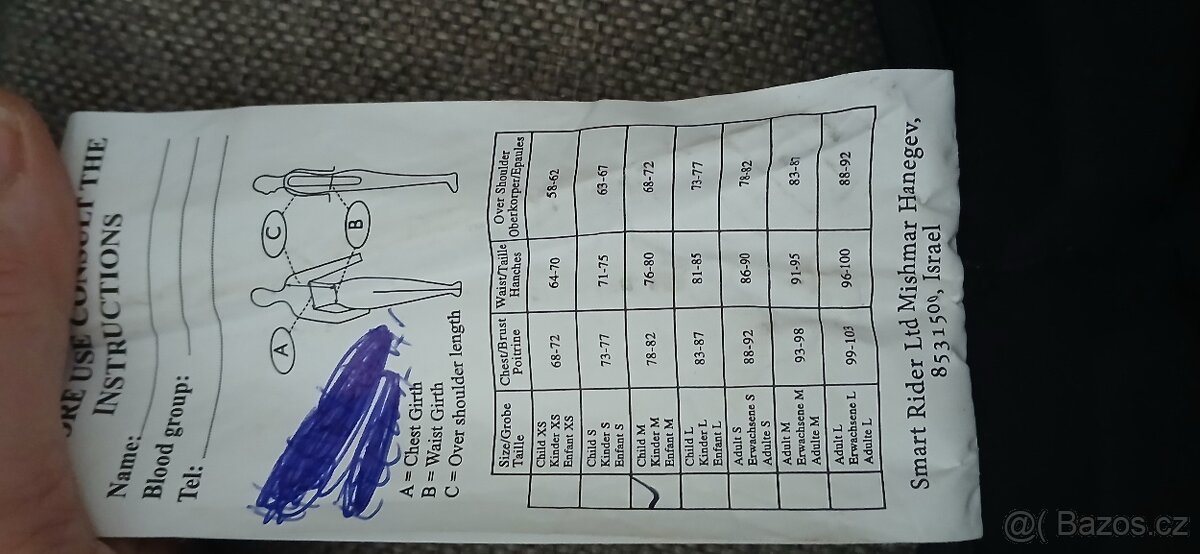 ORE USE CONSULT THE
INSTRUCTIONS
Name:
Blood group:
Tel:
A
C
B
A = Chest Girth
B = Waist Girth
C = Over shoulder length
Size/Grobe Taille Chest/Brust Poitrine Waist/Taille Hanches Over Shoulder Oberkorper/Epaules
Child XS Kinder XS Enfant XS 68-72 64-70 58-62
Child S Kinder S Enfant S 73-77 71-75 63-67
Child M Kinder M Enfant M 78-82 76-80 68-72
Child L Kinder L Enfant L 83-87 81-85 73-77
Adult S Erwachsene S Adulte S 88-92 86-90 78-82
Adult M Erwachsene M Adulte M 93-98 91-95 83-87
Adult L Erwachsene L Adulte L 99-103 96-100 88-92
Smart Rider Ltd Mishmar Hanegev,
8531500, Israel
@( Bazos.cz